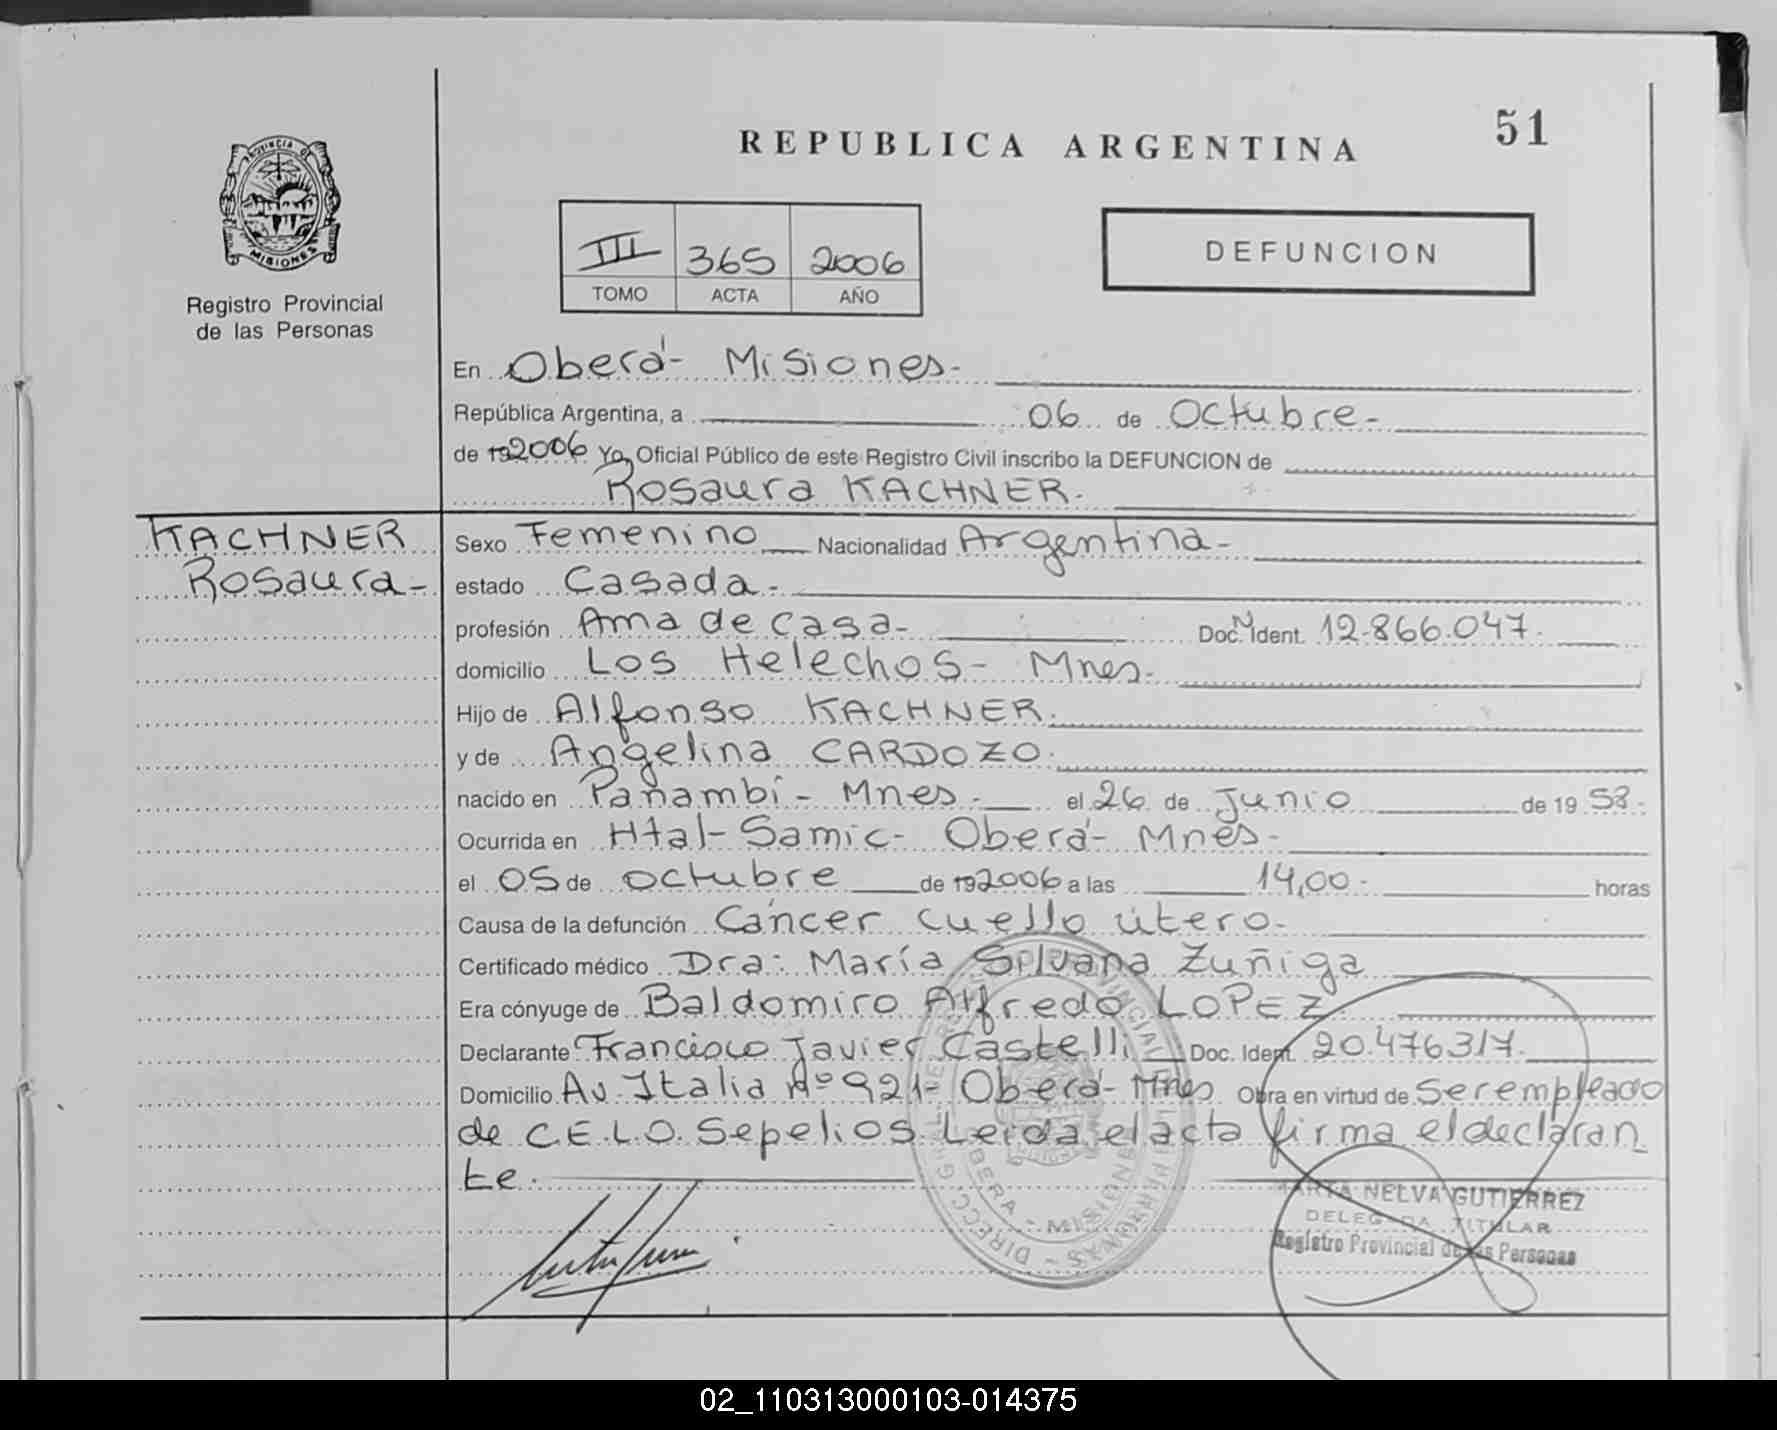 REPUBLICA ARGENTINA
51
PROVINCIA DE
MISIONES
Registro Provincial
de las Personas
III 365 2006
TOMO ACTA AÑO
DEFUNCION
En Oberá- Misiones-
República Argentina, a 06 de Octubre-
de 192006 Yo, Oficial Público de este Registro Civil inscribo la DEFUNCION de
Rosaura KACHNER.
KACHNER
Rosaura-
Sexo Femenino Nacionalidad Argentina-
estado Casada-
profesión Ama de casa- Doc. N Ident. 12.866.047.
domicilio Los Helechos- Mnes.
Hijo de Alfonso KACHNER.
y de Angelina CARDOZO.
nacido en Panambí- Mnes.- el 26 de Junio de 19 58.
Ocurrida en Htal- Samic- Oberá- Mnes-
el 05 de octubre de 192006 a las 14,00- horas
Causa de la defunción Cáncer cuello útero-
Certificado médico Dra: María Silvana Zuñiga
Era cónyuge de Baldomiro Alfredo LOPEZ
Declarante Francisco Javier Castelli Doc. Ident. 20.476317.
Domicilio Av. Italia Nº 921- Oberá- Mnes Obra en virtud de Ser empleado
de C.E.L.O. Sepelios. Leída el acta firma el declaran
te.
MARTA NELVA GUTIERREZ
DELEGADA TITULAR
Registro Provincial de las Personas
02_110313000103-014375